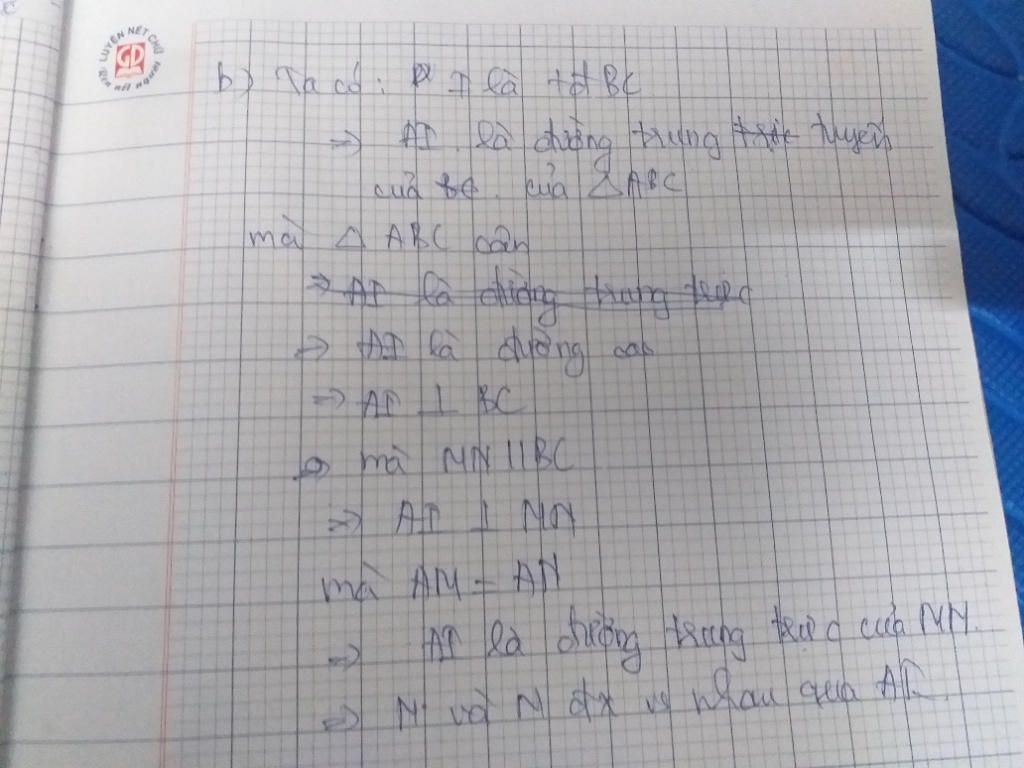 LUYỆN NÉT CHỮ
GD
Rèn nết người
b) Ta có: I là tđ BC
=> AI là đường trung trực tuyến
của BC. của △ABC
mà △ ABC cân
=> AI là đường trung trực
=> AI là đường cao
=> AI ⊥ BC
mà MN || BC
=> AI ⊥ MN
mà AM = AN
=> AI là đường trung trực của MN.
=> M và N đx vs nhau qua AI.